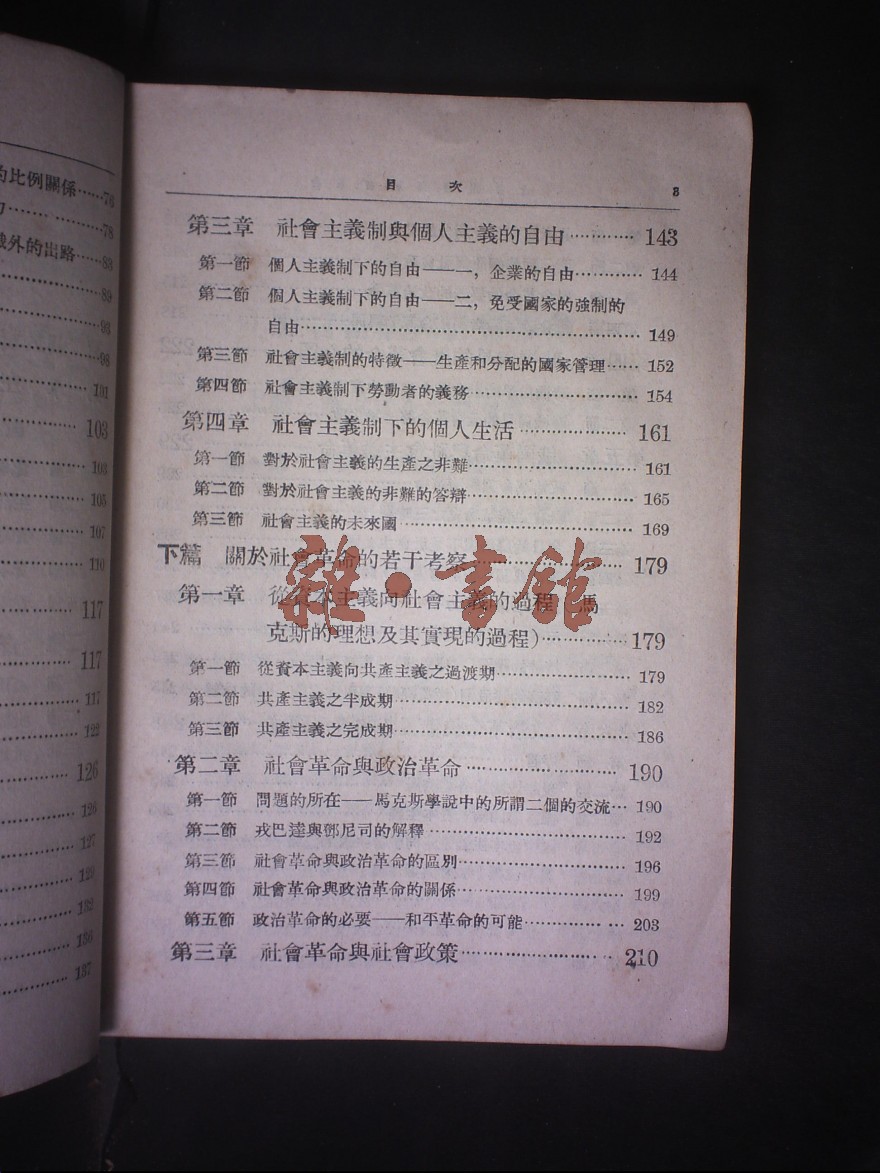 的比例關係……76
……78
外的出路……83
……89
……93
……98
……101
……103
……103
……105
……107
……110
……117
……117
……117
……122
……126
……126
……127
……129
……132
……136
……137
目 次 3
第三章 社會主義制與個人主義的自由…………143
第一節 個人主義制下的自由——一，企業的自由…………144
第二節 個人主義制下的自由——二，免受國家的強制的
自由…………149
第三節 社會主義制的特徵——生產和分配的國家管理……152
第四節 社會主義制下勞動者的義務…………154
第四章 社會主義制下的個人生活…………161
第一節 對於社會主義的生產之非難…………161
第二節 對於社會主義的非難的答辯…………165
第三節 社會主義的未來國…………169
下篇 關於社會革命的若干考察…………179
第一章 從資本主義向社會主義的過程（馬
克斯的理想及其實現的過程）…………179
第一節 從資本主義向共產主義之過渡期…………179
第二節 共產主義之半成期…………182
第三節 共產主義之完成期…………186
第二章 社會革命與政治革命…………190
第一節 問題的所在——馬克斯學說中的所謂二個的交流…190
第二節 戎巴達與鄧尼司的解釋…………192
第三節 社會革命與政治革命的區別…………196
第四節 社會革命與政治革命的關係…………199
第五節 政治革命的必要——和平革命的可能…………203
第三章 社會革命與社會政策…………210
雜·書館